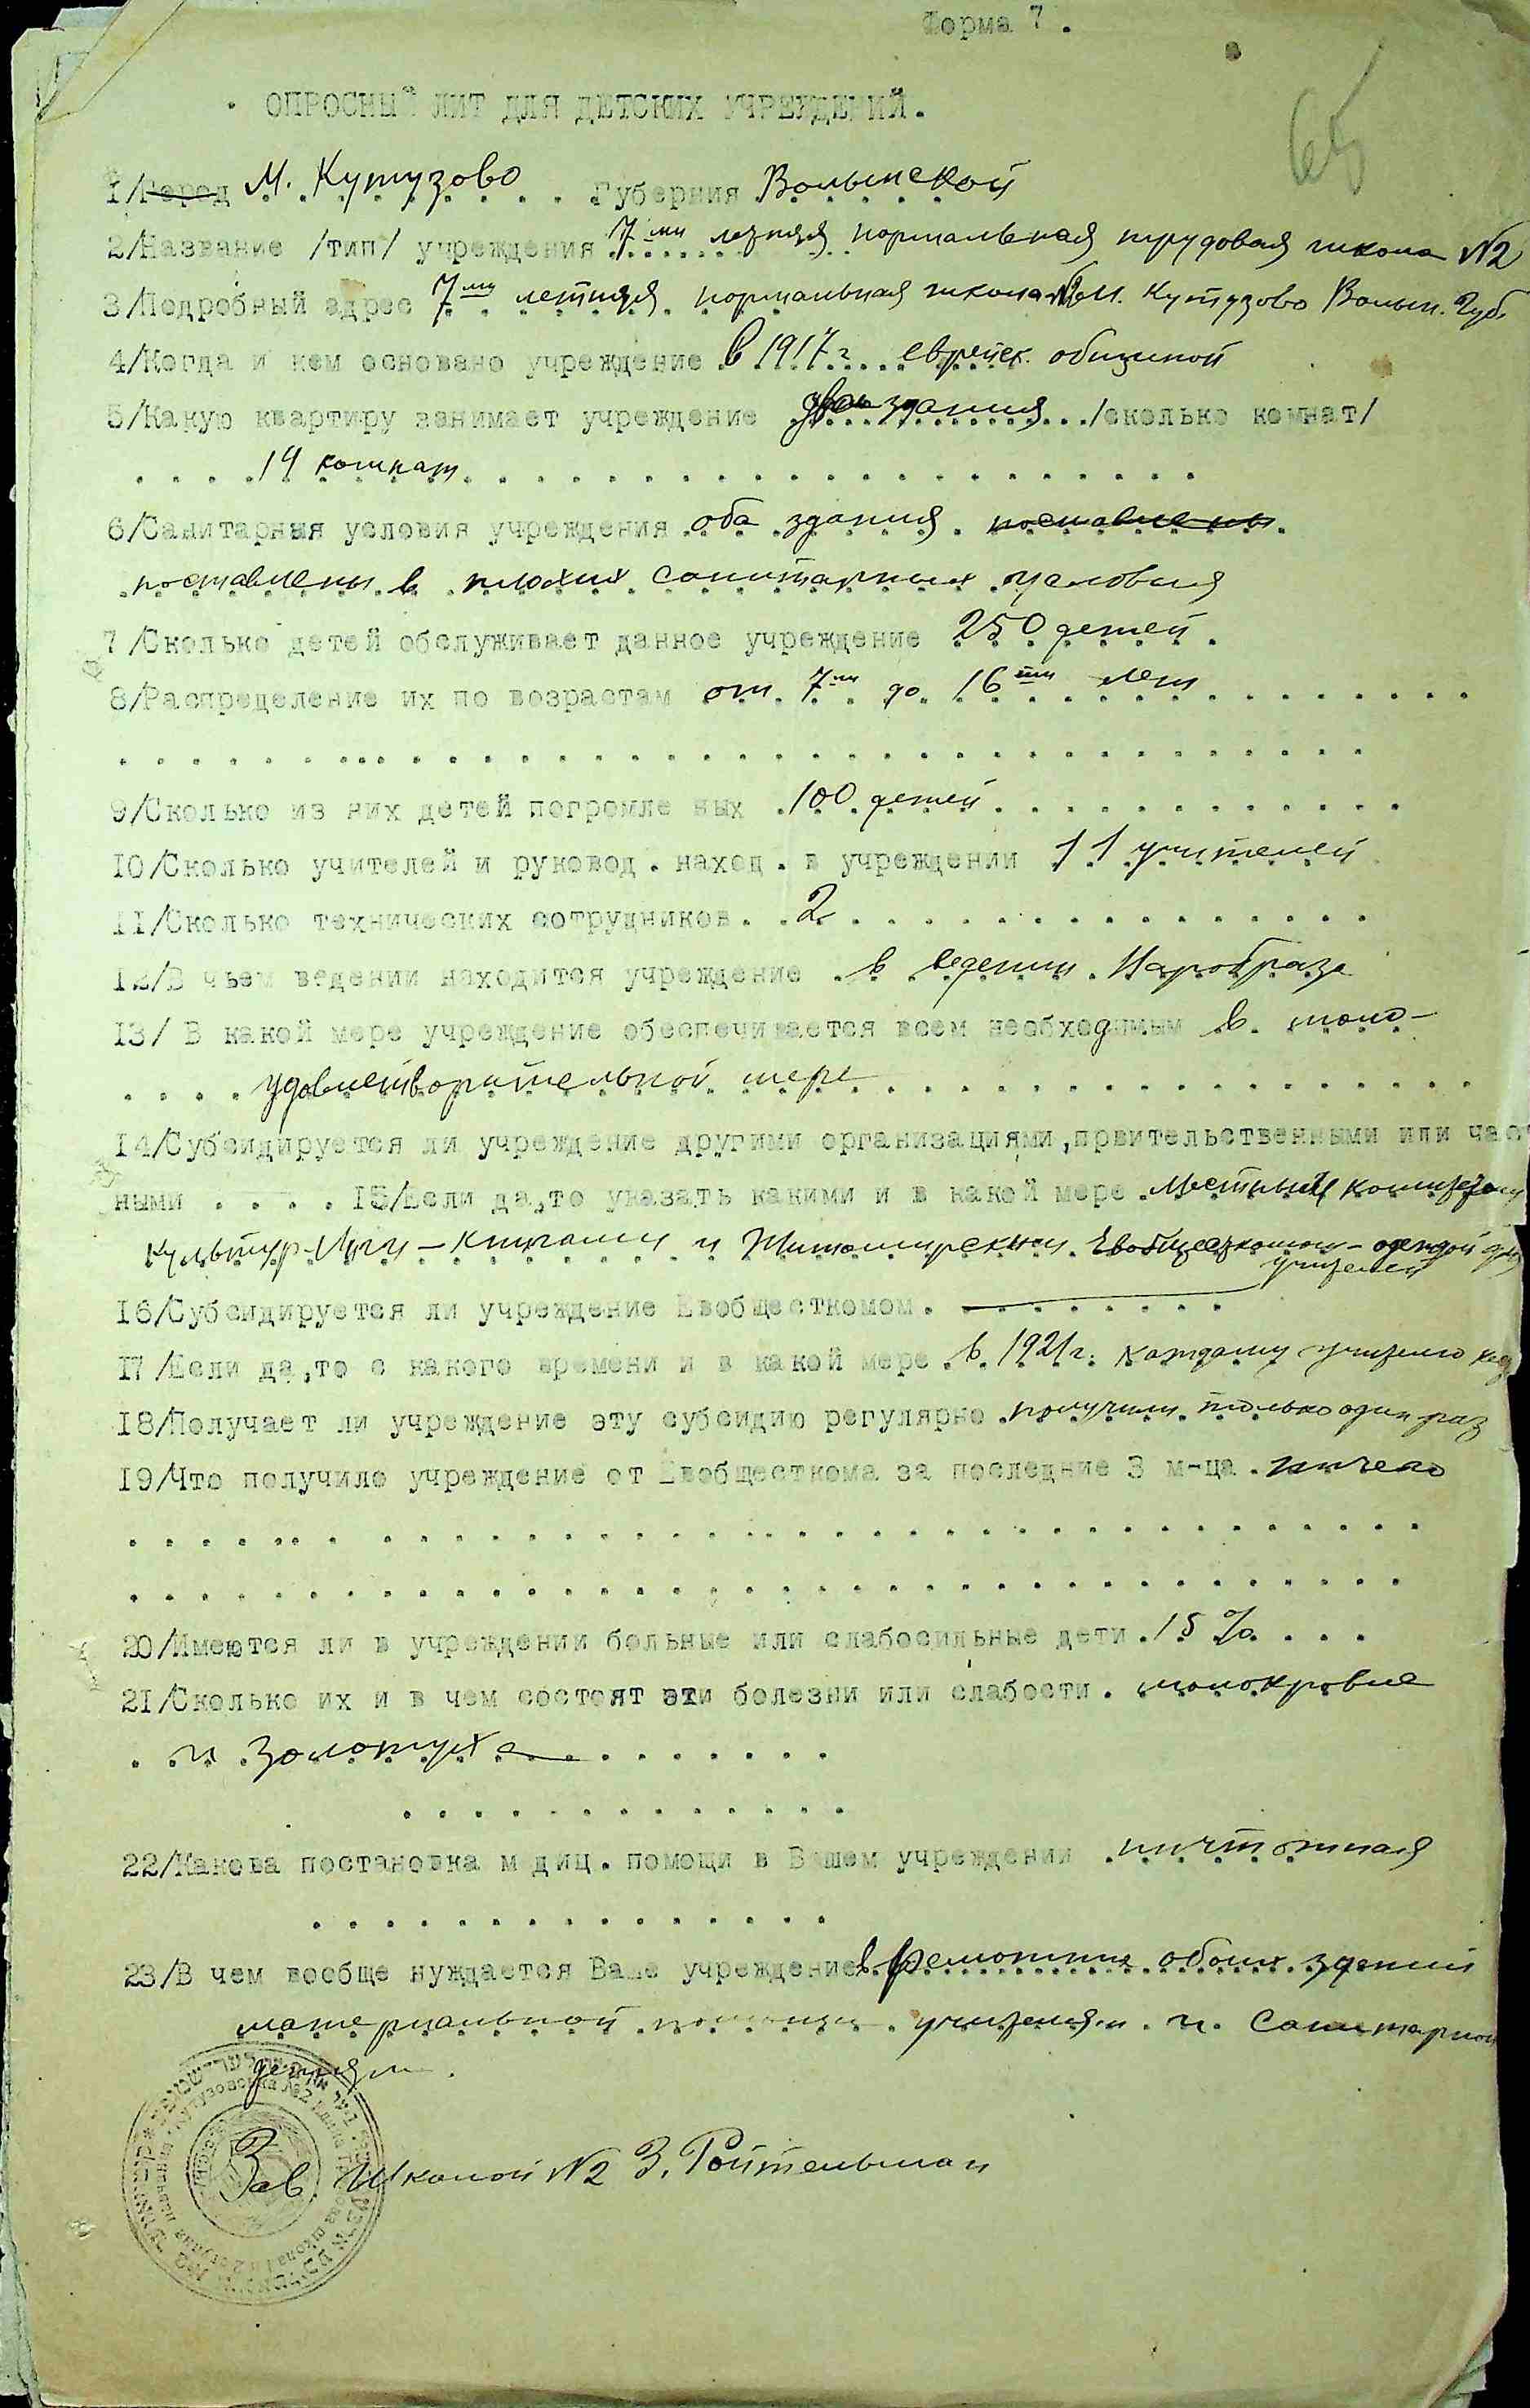 Форма 7.
65
ОПРОСНЫЙ ЛИТ ДЛЯ ДЕТСКИХ УЧРЕЖДЕНИЙ.
1/Город М. Кутузово Губерния Волынской
2/Название /тип/ учреждения 7ми летняя нормальная трудовая школа №2
3/Подробный адрес 7ми летняя нормальная школа №2 М. Кутузово Волын. Губ.
4/Когда и кем основано учреждение в 1917 г. еврейск. общиной
5/Какую квартиру занимает учреждение два здания /сколько комнат/
14 комнат
6/Санитарныя условия учреждения оба здания поставлены
поставлены в плохих санитарных условия
7/Сколько детей обслуживает данное учреждение 250 детей.
8/Распределение их по возрастам от 7ми до 16ти лет
9/Сколько из них детей погромле ных 100 детей
10/Сколько учителей и руковод. наход. в учреждении 11 учителей
11/Сколько технических сотрудников. 2
12/В чьем ведении находится учреждение в ведении Наробраза
13/ В какой мере учреждение обеспечивается всем необходимым в мало-
удовлетворительной мере
14/Субсидируется ли учреждение другими организациями, првительственными или част
ными . . . . 15/Если да,то указать какими и в какой мере Местный комитетом
Культур-Лиги - книгами и Житомирским Евобщесткомом - одеждой для
учителей
16/Субсидируется ли учреждение Евобщесткомом.
17/Если да,то с какого времени и в какой мере в 1921 г. каждому учителю
18/Получает ли учреждение эту субсидию регулярно получили только один раз
19/Что получило учреждение от Евобщесткома за последние 3 м-ца. ничего
20/Имеются ли в учреждении больные или слабосильные дети 15%
21/Сколько их и в чем состоят эти болезни или слабости. малокровие
и золотуха
22/Какова постановка м диц. помощи в Вашем учреждении ничтожная
23/В чем вообще нуждается Ваше учреждение в ремонтие обоих зданий
материальной помощи учителям и санитарной
детям.
Зав. Школой №2 З. Ройтельман